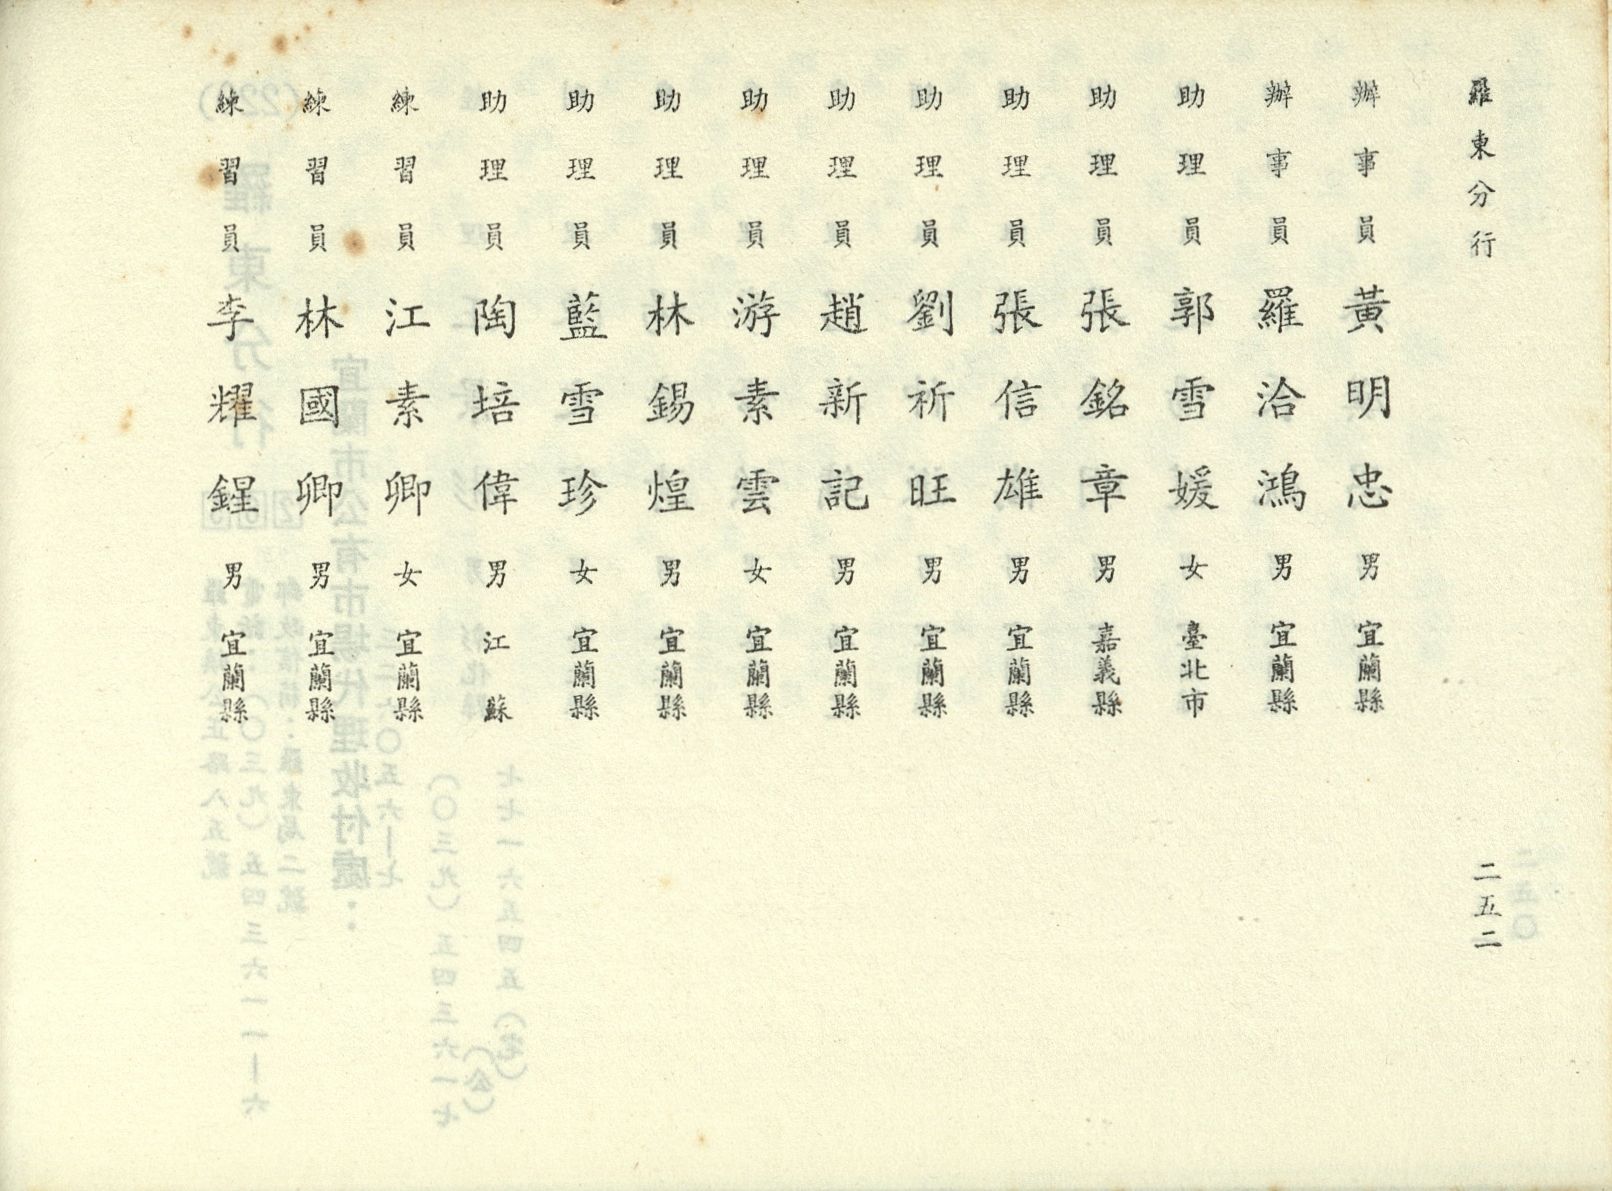 羅東分行
辦事員 黃明忠 男 宜蘭縣
辦事員 羅洽鴻 男 宜蘭縣
助理員 郭雪媛 女 臺北市
助理員 張銘章 男 嘉義縣
助理員 張信雄 男 宜蘭縣
助理員 劉祈旺 男 宜蘭縣
助理員 趙新記 男 宜蘭縣
助理員 游素雲 女 宜蘭縣
助理員 林錫煌 男 宜蘭縣
助理員 藍雪珍 女 宜蘭縣
助理員 陶培偉 男 江蘇
練習員 江素卿 女 宜蘭縣
練習員 林國卿 男 宜蘭縣
練習員 李耀鋥 男 宜蘭縣
二五二